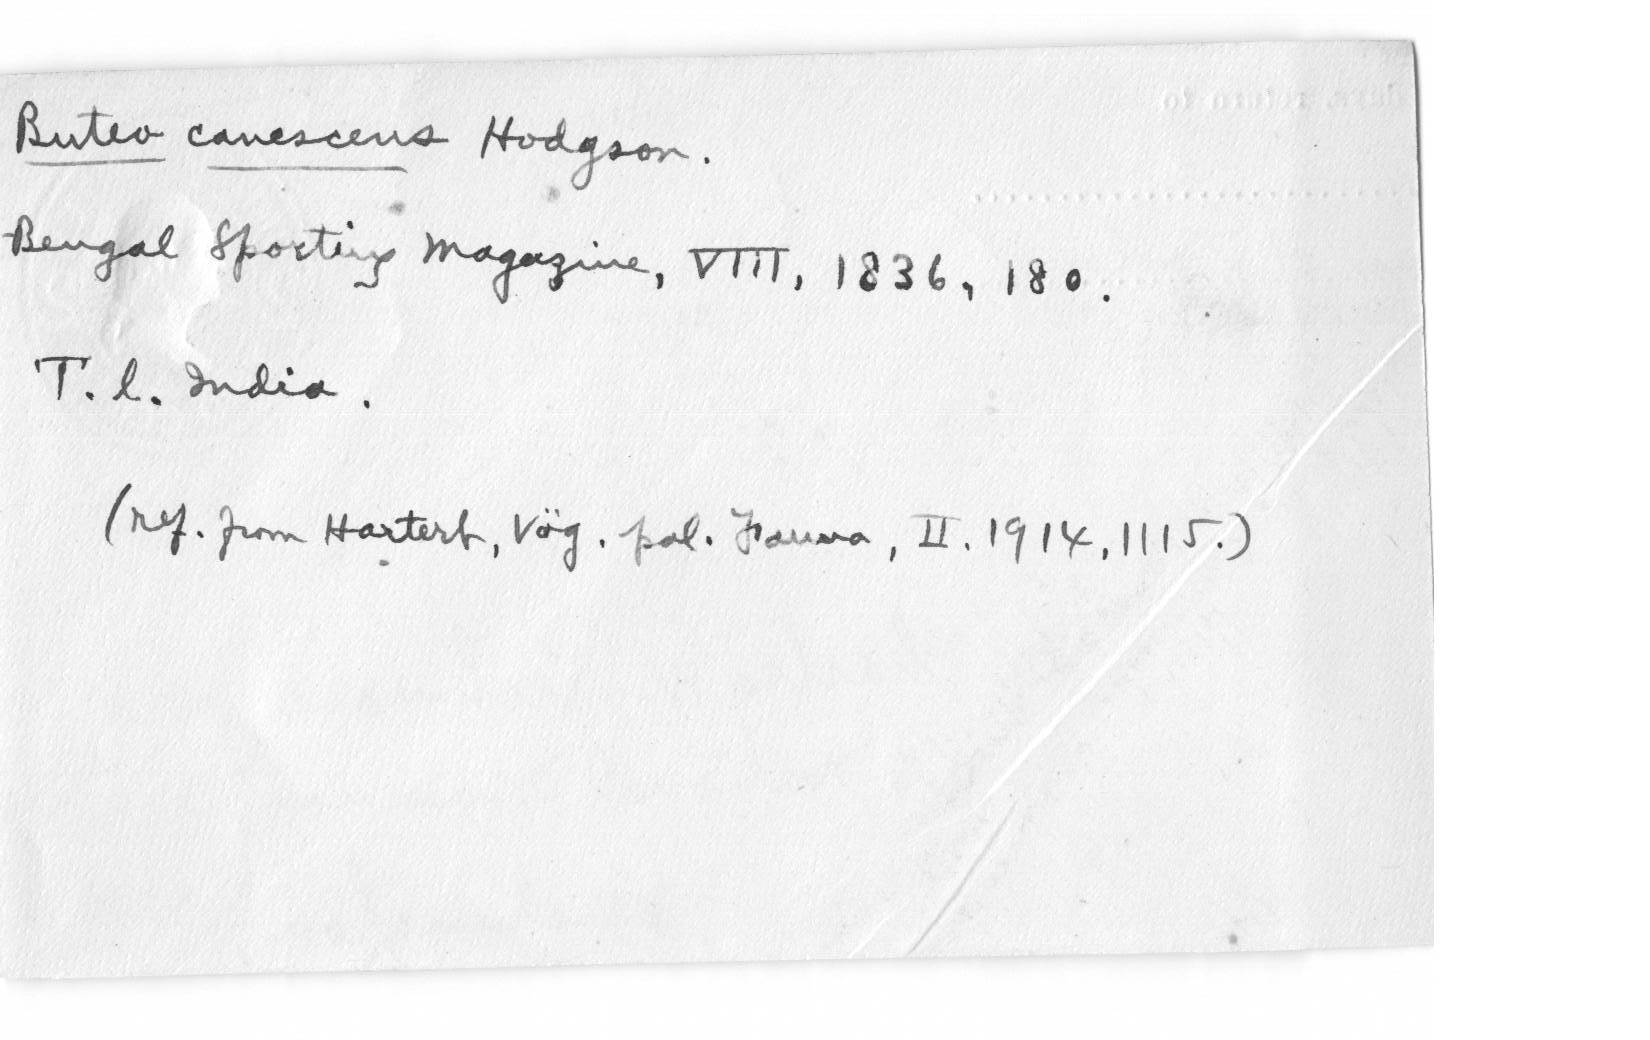 Buteo canescens Hodgson.
Bengal Sporting Magazine, VIII, 1836, 180.
T. l. India.
(ref. from Hartert, Vög. pal. Fauna, II. 1914, 1115.)
return to